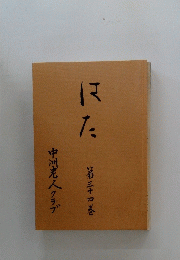 はた
第三十四巻
中洲老人クラブ